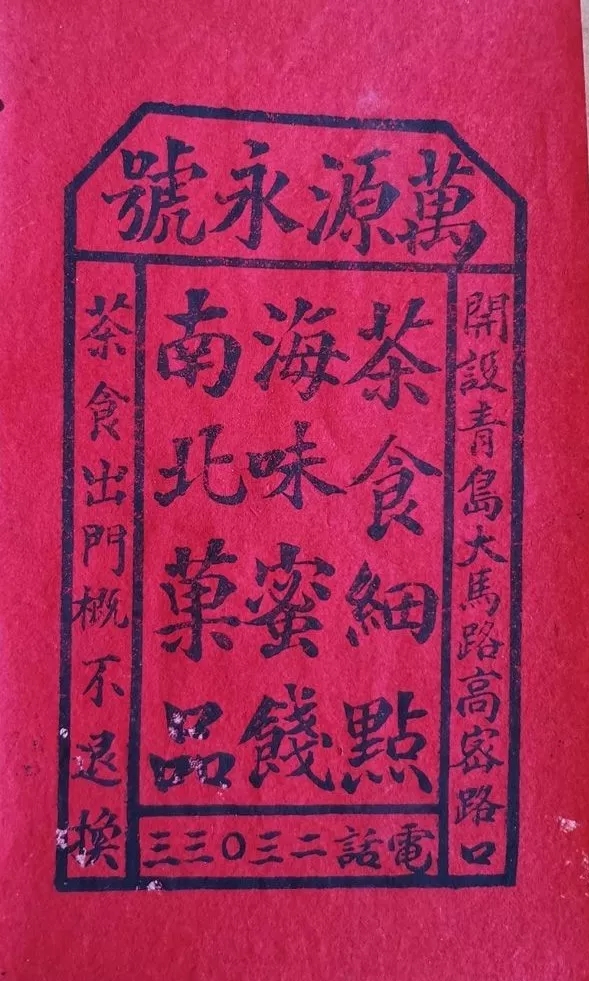 萬源永號
開設青島大馬路高密路口
茶食細點
海味蜜餞
南北菓品
茶食出門概不退換
電話二三〇三三